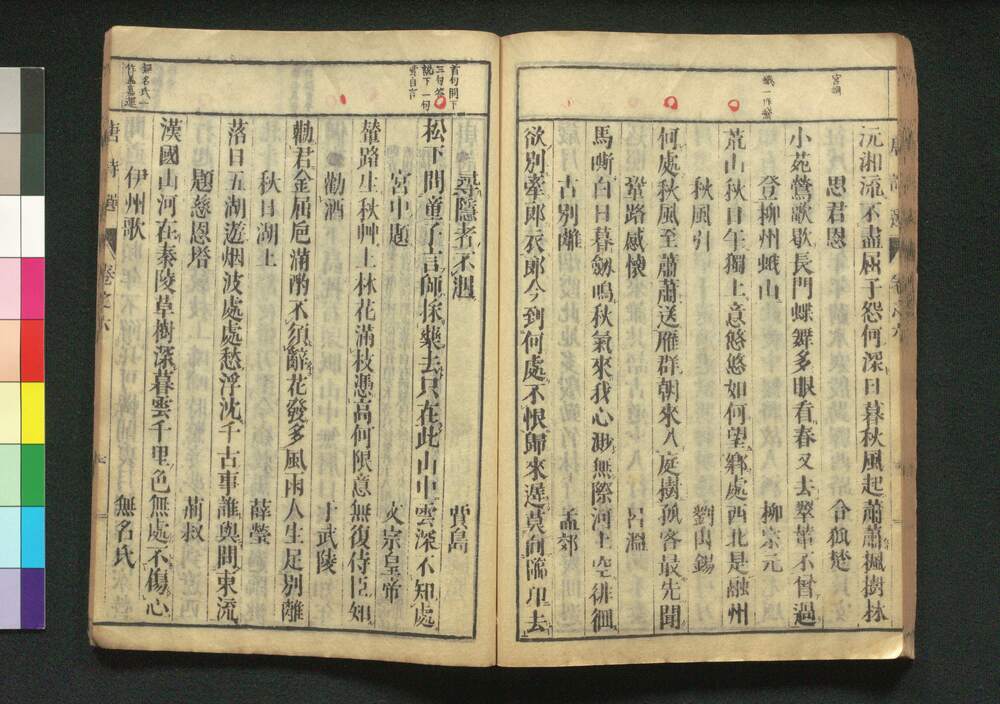 宮詞
峨一作鵝
沅湘流不盡屈子怨何深日暮秋風起蕭蕭楓樹林
思君恩　令狐楚
小苑鶯歌歇長門蝶舞多眼看春又去翠華不曾過
登柳州蛾山　柳宗元
荒山秋日午獨上意悠悠如何望鄉處西北是融州
秋風引　劉禹錫
何處秋風至蕭蕭送雁群朝來入庭樹孤客最先聞
鞏路感懷　呂溫
馬嘶白日暮劒鳴秋氣來我心渺無際河上空徘徊
古別離　孟郊
欲別牽郎衣郎今到何處不恨歸來遲莫向臨邛去
首句問下
三句答
說下一句
尋隱者不遇　賈島
松下問童子言師採藥去只在此山中雲深不知處
宮中題　文宗皇帝
輦路生秋艸上林花滿枝憑高何限意無復侍臣知
勸酒　于武陵
勸君金屈巵滿酌不須辭花發多風雨人生足別離
秋日湖上　薛瑩
落日五湖遊烟波處處愁浮沈千古事誰與問東流
題慈恩塔　荊叔
漢國山河在秦陵草樹深暮雲千里色無處不傷心
伊州歌　無名氏
無名氏一
作蓋嘉運
唐詩選　卷之六